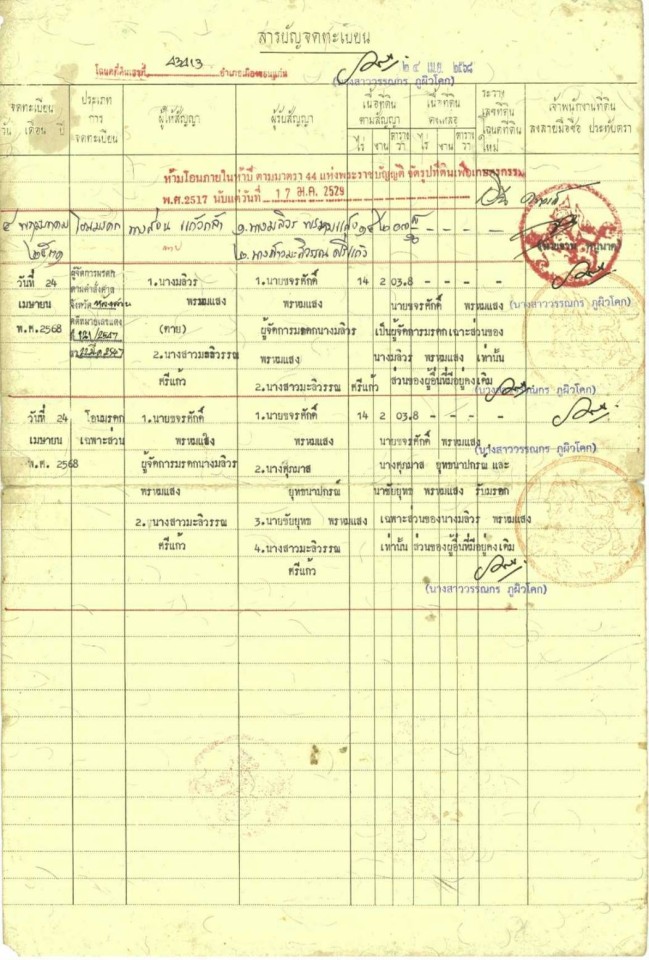 สารบัญจดทะเบียน
โฉนดที่ดินเลขที่ 43413 อำเภอเมืองขอนแก่น
๒๔ เม.ย. ๒๕๖๘
(นางสาววรรณกร ภูผิวโคก)
จดทะเบียน
วัน เดือน ปี
ประเภท
การ
จดทะเบียน
ผู้ให้สัญญา
ผู้รับสัญญา
เนื้อที่ดิน
ตามสัญญา
ไร่ งาน ตาราง
วา
เนื้อที่ดิน
คงเหลือ
ไร่ งาน ตาราง
วา
ระวาง
เลขที่ดิน
โฉนดที่ดิน
ใหม่
เจ้าพนักงานที่ดิน
ลงลายมือชื่อ ประทับตรา
ห้ามโอนภายในห้าปี ตามมาตรา 44 แห่งพระราชบัญญัติ จัดรูปที่ดินเพื่อเกษตรกรรม
พ.ศ.2517 นับแต่วันที่ 17 ม.ค. 2529
๔ พฤษภาคม โอนมรดก ๑.นางมลิวร พรหมแสง ๑๔ ๒ - - - -
๒.นางสาวมะลิวรรณ ศรีแก้ว
วันที่ 24 ผู้จัดการมรดก 1.นางมลิวร 1.นายขจรศักดิ์ 14 2 03.8 - - - -
ตามคำสั่งศาล
เมษายน จังหวัด พรหมแสง พรหมแสง นายขจรศักดิ์ พรหมแสง (นางสาววรรณกร ภูผิวโคก)
คดีหมายเลขแดง
พ.ศ.2568 (ตาย) ผู้จัดการมรดกนางมลิวร เป็นผู้จัดการมรดกเฉพาะส่วนของ
2.นางสาวมะลิวรรณ พรหมแสง นางมลิวร พรหมแสง เท่านั้น
ศรีแก้ว 2.นางสาวมะลิวรรณ ศรีแก้ว ส่วนของผู้อื่นที่มีอยู่คงเดิม
(นางสาววรรณกร ภูผิวโคก)
วันที่ 24 โอนมรดก 1.นายขจรศักดิ์ 1.นายขจรศักดิ์ 14 2 03.8 - - - -
เมษายน เฉพาะส่วน พรหมแสง พรหมแสง นายขจรศักดิ์ พรหมแสง
(นางสาววรรณกร ภูผิวโคก)
พ.ศ. 2568 ผู้จัดการมรดกนางมลิวร 2.นางศุภมาส นางศุภมาส ยุทธนาปกรณ์ และ
พรหมแสง ยุทธนาปกรณ์ นายชัยยุทธ พรหมแสง รับมรดก
2.นางสาวมะลิวรรณ 3.นายชัยยุทธ พรหมแสง เฉพาะส่วนของนางมลิวร พรหมแสง
ศรีแก้ว 4.นางสาวมะลิวรรณ เท่านั้น ส่วนของผู้อื่นที่มีอยู่คงเดิม
ศรีแก้ว
(นางสาววรรณกร ภูผิวโคก)